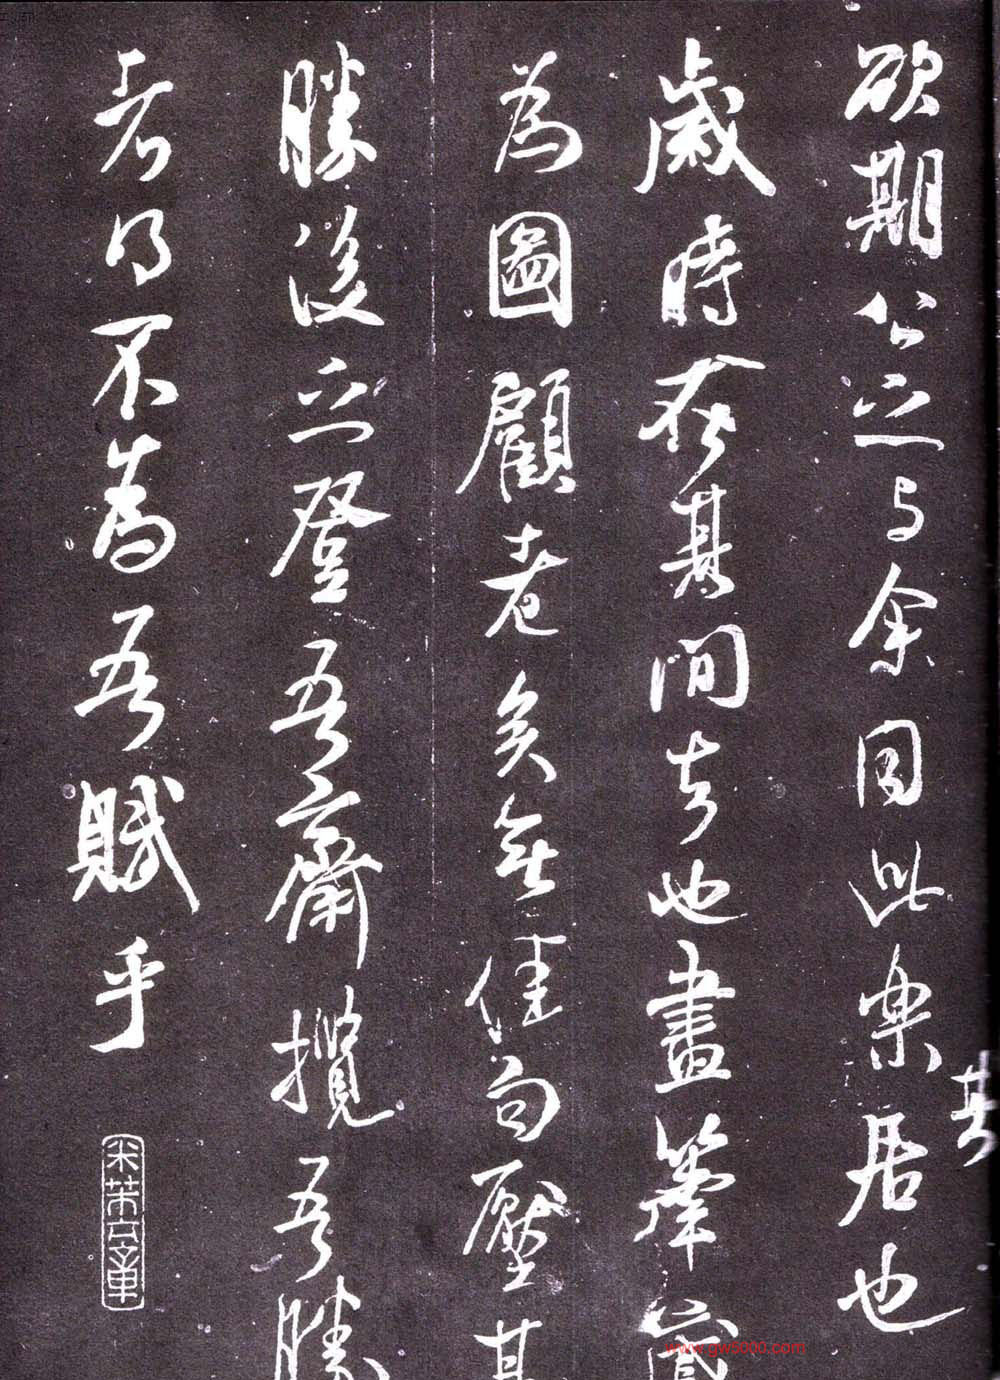 欲期公之与余同此楽居也
歲時在其間也畫筆
為圖顧老矣無佳句壓其
勝後之登吾齋攬吾勝
者得不為吾賦乎
米芾之章
www.gws000.com